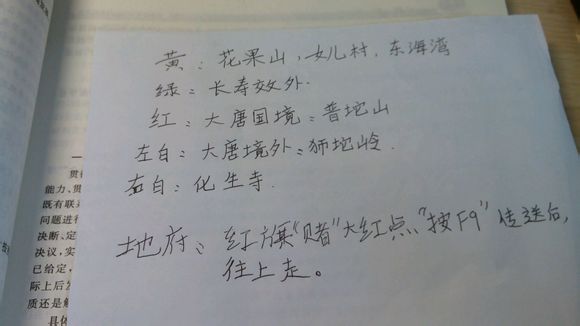 黄：花果山，女儿村，东海湾
绿：长寿效外.
红：大唐国境：普坨山
左白：大唐境外：狮坨岭.
右白：化生寺.
地府：红旗"赌"大红点、"按F9"传送后，
往上走。
一
贯
能力、贯
既有联
问题进行
决断、定
决议，实
已给定，
际上后
质还是
具体